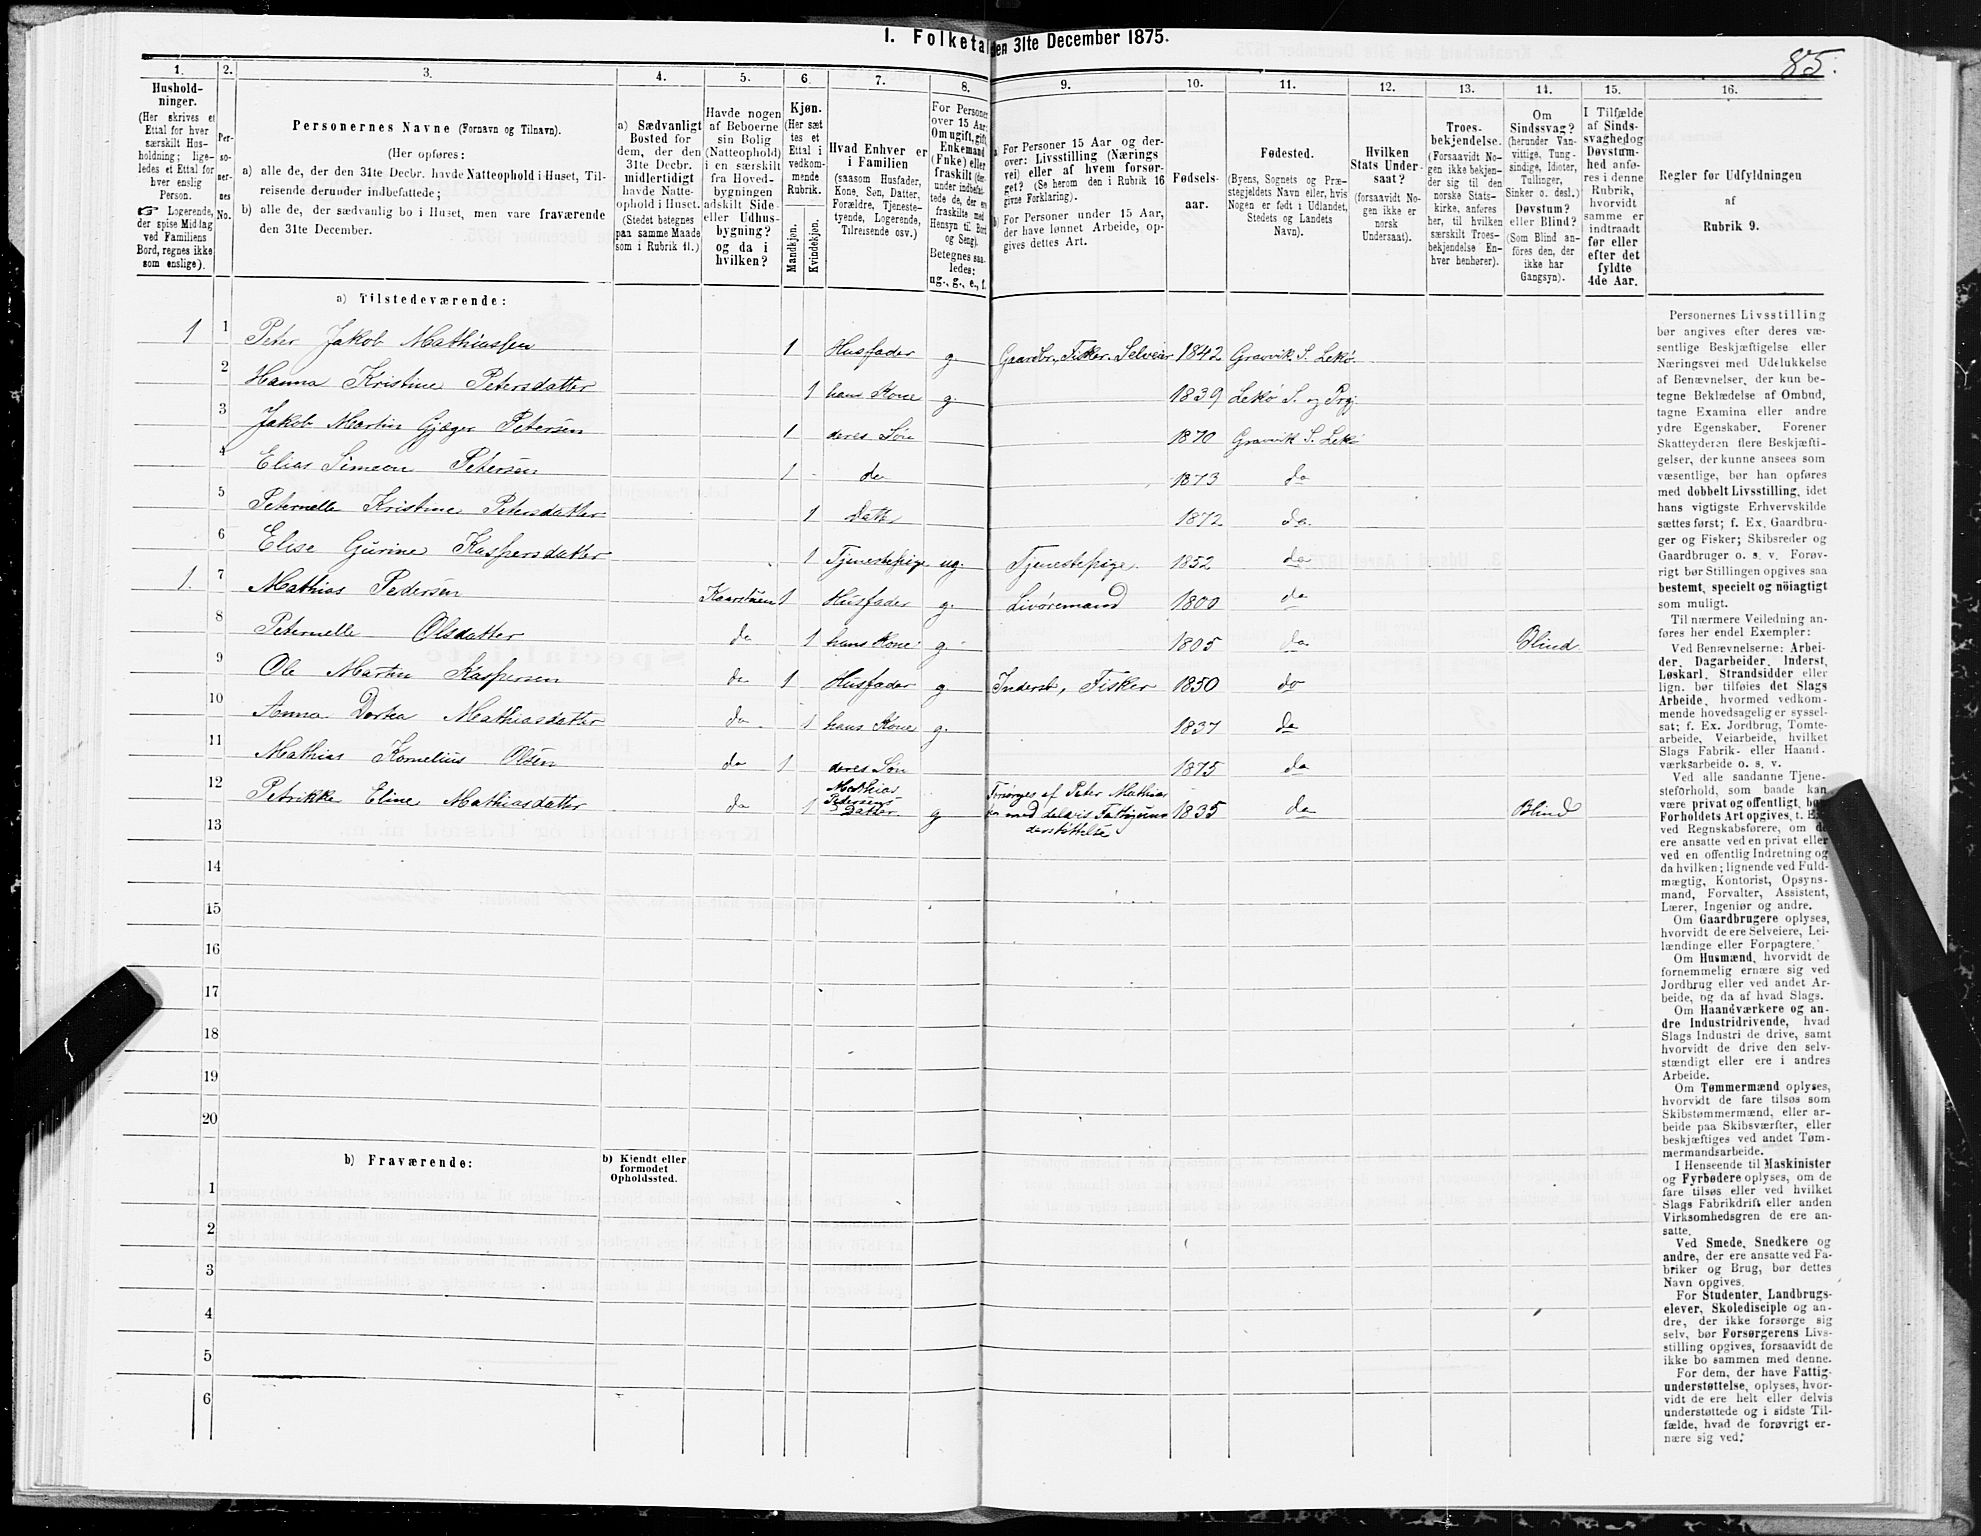 I. Folketal den 31te December 1875.
85.
1. 2. 3. 4. 5. 6. 7. 8. 9. 10. 11. 12. 13. 14. 15. 16.
Hushold-
ninger.
(Her skrives et
Ettal for hver
særskilt Hus-
holdning; lige-
ledes et Ettal for
hver enslig
Person.
☞ Logerende,
der spise Middag
ved Familiens
Bord, regnes ikke
som enslige).
Per-
so-
ner-
nes
No.
Personernes Navne (Fornavn og Tilnavn).
(Her opføres:
a) alle de, der den 31te Decbr. havde Natteophold i Huset, Til-
reisende derunder indbefattede;
b) alle de, der sædvanlig bo i Huset, men vare fraværende
den 31te December.
a) Sædvanligt
Bosted for
dem, der den
31te Decbr.
midlertidigt
havde Natte-
ophold i Huset.
(Stedet betegnes
paa samme Maade
som i Rubrik 11.)
Havde nogen
af Beboerne
sin Bolig
(Natteophold)
i en særskilt
fra Hoved-
bygningen
adskilt Side-
eller Udhus-
bygning?
og da i
hvilken?
Kjøn.
(Her sæt-
tes et
Ettal i
vedkom-
mende
Rubrik.
Mandkjøn.
Kvindekjøn.
Hvad Enhver er
i Familien
(saasom Husfader,
Kone, Søn, Datter,
Forældre, Tjeneste-
tyende, Logerende,
Tilreisende osv.)
For Personer
over 15 Aar:
Om ugift, gift,
Enkemand
(Enke) eller
fraskilt (der-
under indbefat-
tede de, der ere
fraskilte med
Hensyn til Bord
og Seng).
Betegnes saa-
ledes:
ug., g., e., f.
a) For Personer 15 Aar og der-
over: Livsstilling (Nærings-
vei) eller af hvem forsør-
get? (Se herom den i Rubrik 16
givne Forklaring).
b) For Personer under 15 Aar,
der have lønnet Arbeide, op-
gives dettes Art.
Fødsels-
aar.
Fødested.
(Byens, Sognets og Præ-
stegjeldets Navn eller, hvis
Nogen er født i Udlandet,
Stedets og Landets
Navn).
Hvilken
Stats Under-
saat?
(forsaavidt No-
gen ikke er
norsk
Undersaat).
Troes-
bekjendelse.
(Forsaavidt No-
gen ikke bekjen-
der sig til den
norske Stats-
kirke, anføres
her, til hvilken
særskilt Troes-
bekjendelse En-
hver henhører).
Om
Sindssvag?
(herunder Van-
vittige, Tung-
sindige, Idioter,
Tullinger,
Sinker o. desl.)
Døvstum?
eller Blind?
(Som Blind an-
føres den, der
ikke har
Gangsyn).
I Tilfælde
af Sinds-
svaghed og
Døvstum-
hed anfø-
res i denne
Rubrik,
hvorvidt
samme er
indtraadt
før eller
efter det
fyldte
4de Aar.
Regler for Udfyldningen
af
Rubrik 9.
a) Tilstedeværende:
1 1 Peter Jakob Mathiassen 1 Husfader g Gaardbr., Fisker. Selveier 1842 Gravvik S. Lekø.
2 Hanna Kristine Petersdatter 1 hans Kone g. 1839 Lekø S. og Prgj.
3 Jakob Martin Gjæger Petersen 1 deres Søn 1870 Gravvik S. Lekø
4 Elias Simeon Petersen 1 do 1873 do
5 Peternelle Kristine Petersdatter 1 Datter 1872 do.
6 Elise Gurine Kaspersdatter 1 Tjenestepige ug. Tjenestepige. 1852 do
1. 7 Mathias Pedersen Kaarstuen 1 Husfader g. Livøremand 1800 do
8 Peternelle Olsdatter do 1 hans Kone g. 1805 do Blind
9 Ole Martin Kaspersen do 1 Husfader g Inderst, Fisker 1850 do
10 Anna Dortea Mathiasdatter do 1 hans Kone g. 1837 do
11 Mathias Kornelius Olsen do 1 deres Søn 1875 do
12 Petrikke Eline Mathiasdatter do 1 Mathias Pedersens Datter g Forsørges af Peter Mathias- sen med delvis Fattigun- derstøttelse 1835 do Blind
13
14
15
16
17
18
19
20
b) Fraværende:
b) Kjendt eller
formodet
Opholdssted.
1
2
3
4
5
6
Personernes Livsstilling
bør angives efter deres væ-
sentlige Beskjæftigelse eller
Næringsvei med Udelukkelse
af Benævnelser, der kun be-
tegne Beklædelse af Ombud,
tagne Examina eller andre
ydre Egenskaber. Forener
Skatteyderen flere Beskjæfti-
gelser, der kunne ansees som
væsentlige, bør han opføres
med dobbelt Livsstilling, idet
hans vigtigste Erhvervskilde
sættes først; f. Ex. Gaardbru-
ger og Fisker; Skibsreder og
Gaardbruger o. s. v. Forøv-
rigt bør Stillingen opgives saa
bestemt, specielt og nøiagtigt
som muligt.
Til nærmere Veiledning an-
føres her endel Exempler:
Ved Benævnelserne: Arbei-
der, Dagarbeider, Inderst,
Løskarl, Strandsidder eller
lign. bør tilføies det Slags
Arbeide, hvormed vedkom-
mende hovedsagelig er syssel-
sat; f. Ex. Jordbrug, Tomte-
arbeide, Veiarbeide, hvilket
Slags Fabrik- eller Haand-
værksarbeide o. s. v.
Ved alle saadanne Tjene-
steforhold, som baade kan
være privat og offentligt, bør
Forholdets Art opgives, t. Ex.
ved Regnskabsførere, om de
ere ansatte ved en privat eller
ved en offentlig Indretning og
da hvilken; lignende ved Fuld-
mægtig, Kontorist, Opsyns-
mand, Forvalter, Assistent,
Lærer, Ingeniør og andre.
Om Gaardbrugere oplyses,
hvorvidt de ere Selveiere, Lei-
lændinge eller Forpagtere.
Om Husmænd, hvorvidt de
fornemmelig ernære sig ved
Jordbrug eller ved andet Ar-
beide, og da af hvad Slags.
Om Haandværkere og an-
dre Industridrivende, hvad
Slags Industri de drive, samt
hvorvidt de drive den selv-
stændigt eller ere i andres
Arbeide.
Om Tømmermænd oplyses,
hvorvidt de fare tilsøs som
Skibstømmermænd, eller ar-
beide paa Skibsværfter, eller
beskjæftiges ved andet Tøm-
mermandsarbeide.
I Henseende til Maskinister
og Fyrbødere oplyses, om de
fare tilsøs eller ved hvilket
Slags Fabrikdrift eller anden
Virksomhedsgren de ere an-
satte.
Ved Smede, Snedkere og
andre, der ere ansatte ved Fa-
briker og Brug, bør dettes
Navn opgives.
For Studenter, Landbrugs-
elever, Skoledisciple og an-
dre, der ikke forsørge sig
selv, bør Forsørgerens Livs-
stilling opgives, forsaavidt de
ikke bo sammen med denne.
For dem, der have Fattig-
understøttelse, oplyses, hvor-
vidt de ere helt eller delvis
understøttede og i sidste Til-
fælde, hvad de forøvrigt er-
nære sig ved.